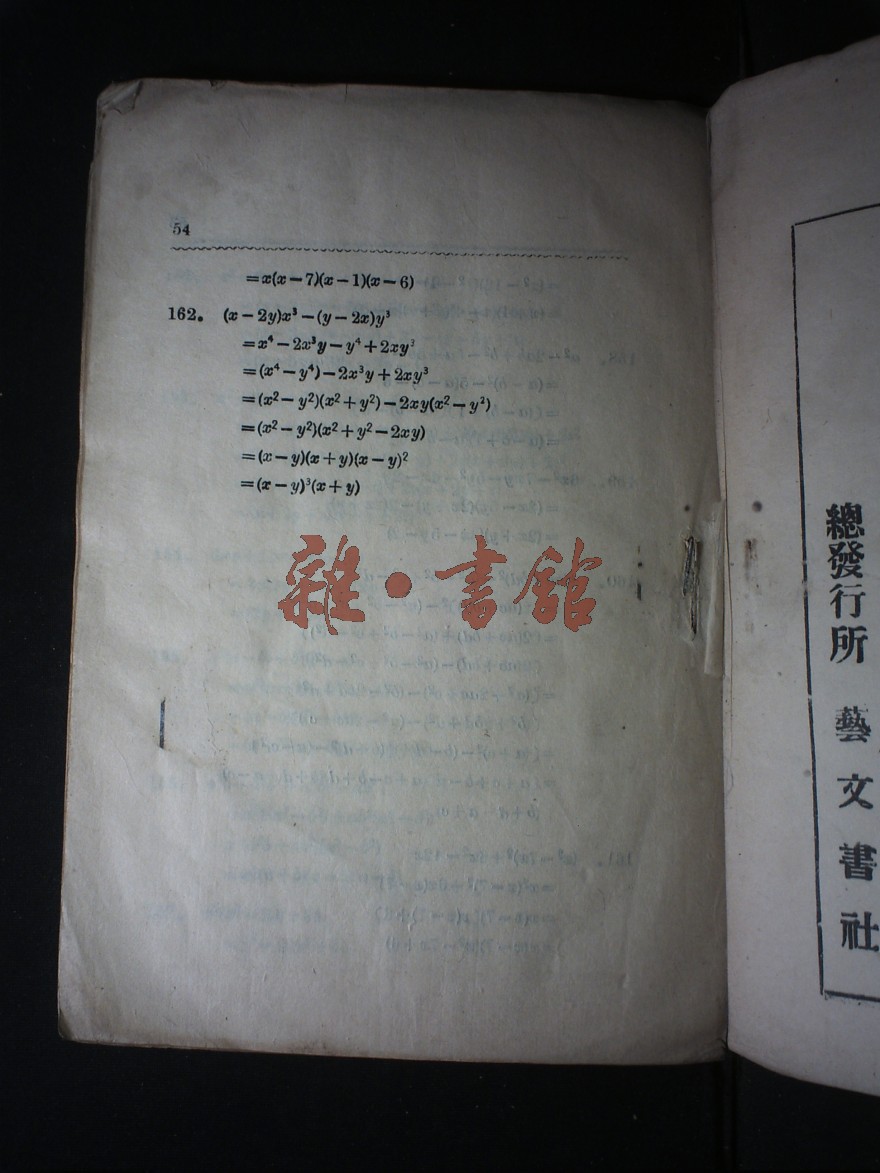 54
=x(x−7)(x−1)(x−6)
162。 (x−2y)x³−(y−2x)y³
=x⁴−2x³y−y⁴+2xy³
=(x⁴−y⁴)−2x³y+2xy³
=(x²−y²)(x²+y²)−2xy(x²−y²)
=(x²−y²)(x²+y²−2xy)
=(x−y)(x+y)(x−y)²
=(x−y)³(x+y)
雜·書館
總發行所 藝文書社